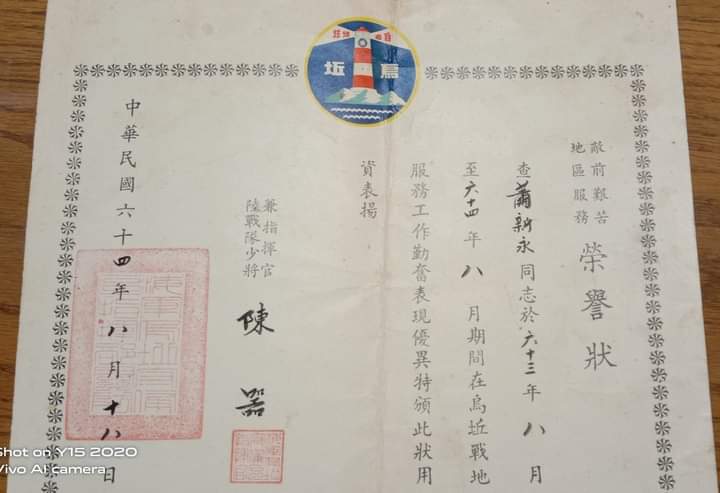 烏坵
敵前艱苦
地區服務
榮譽狀
查蕭新永同志於六十三年八月
至六十四年八月期間在烏坵戰地
服務工作勤奮表現優異特頒此狀用
資表揚
兼指揮官
陸戰隊少將
陳器
中華民國六十四年八月十八日
Shot on Y15 2020
Vivo AI camera